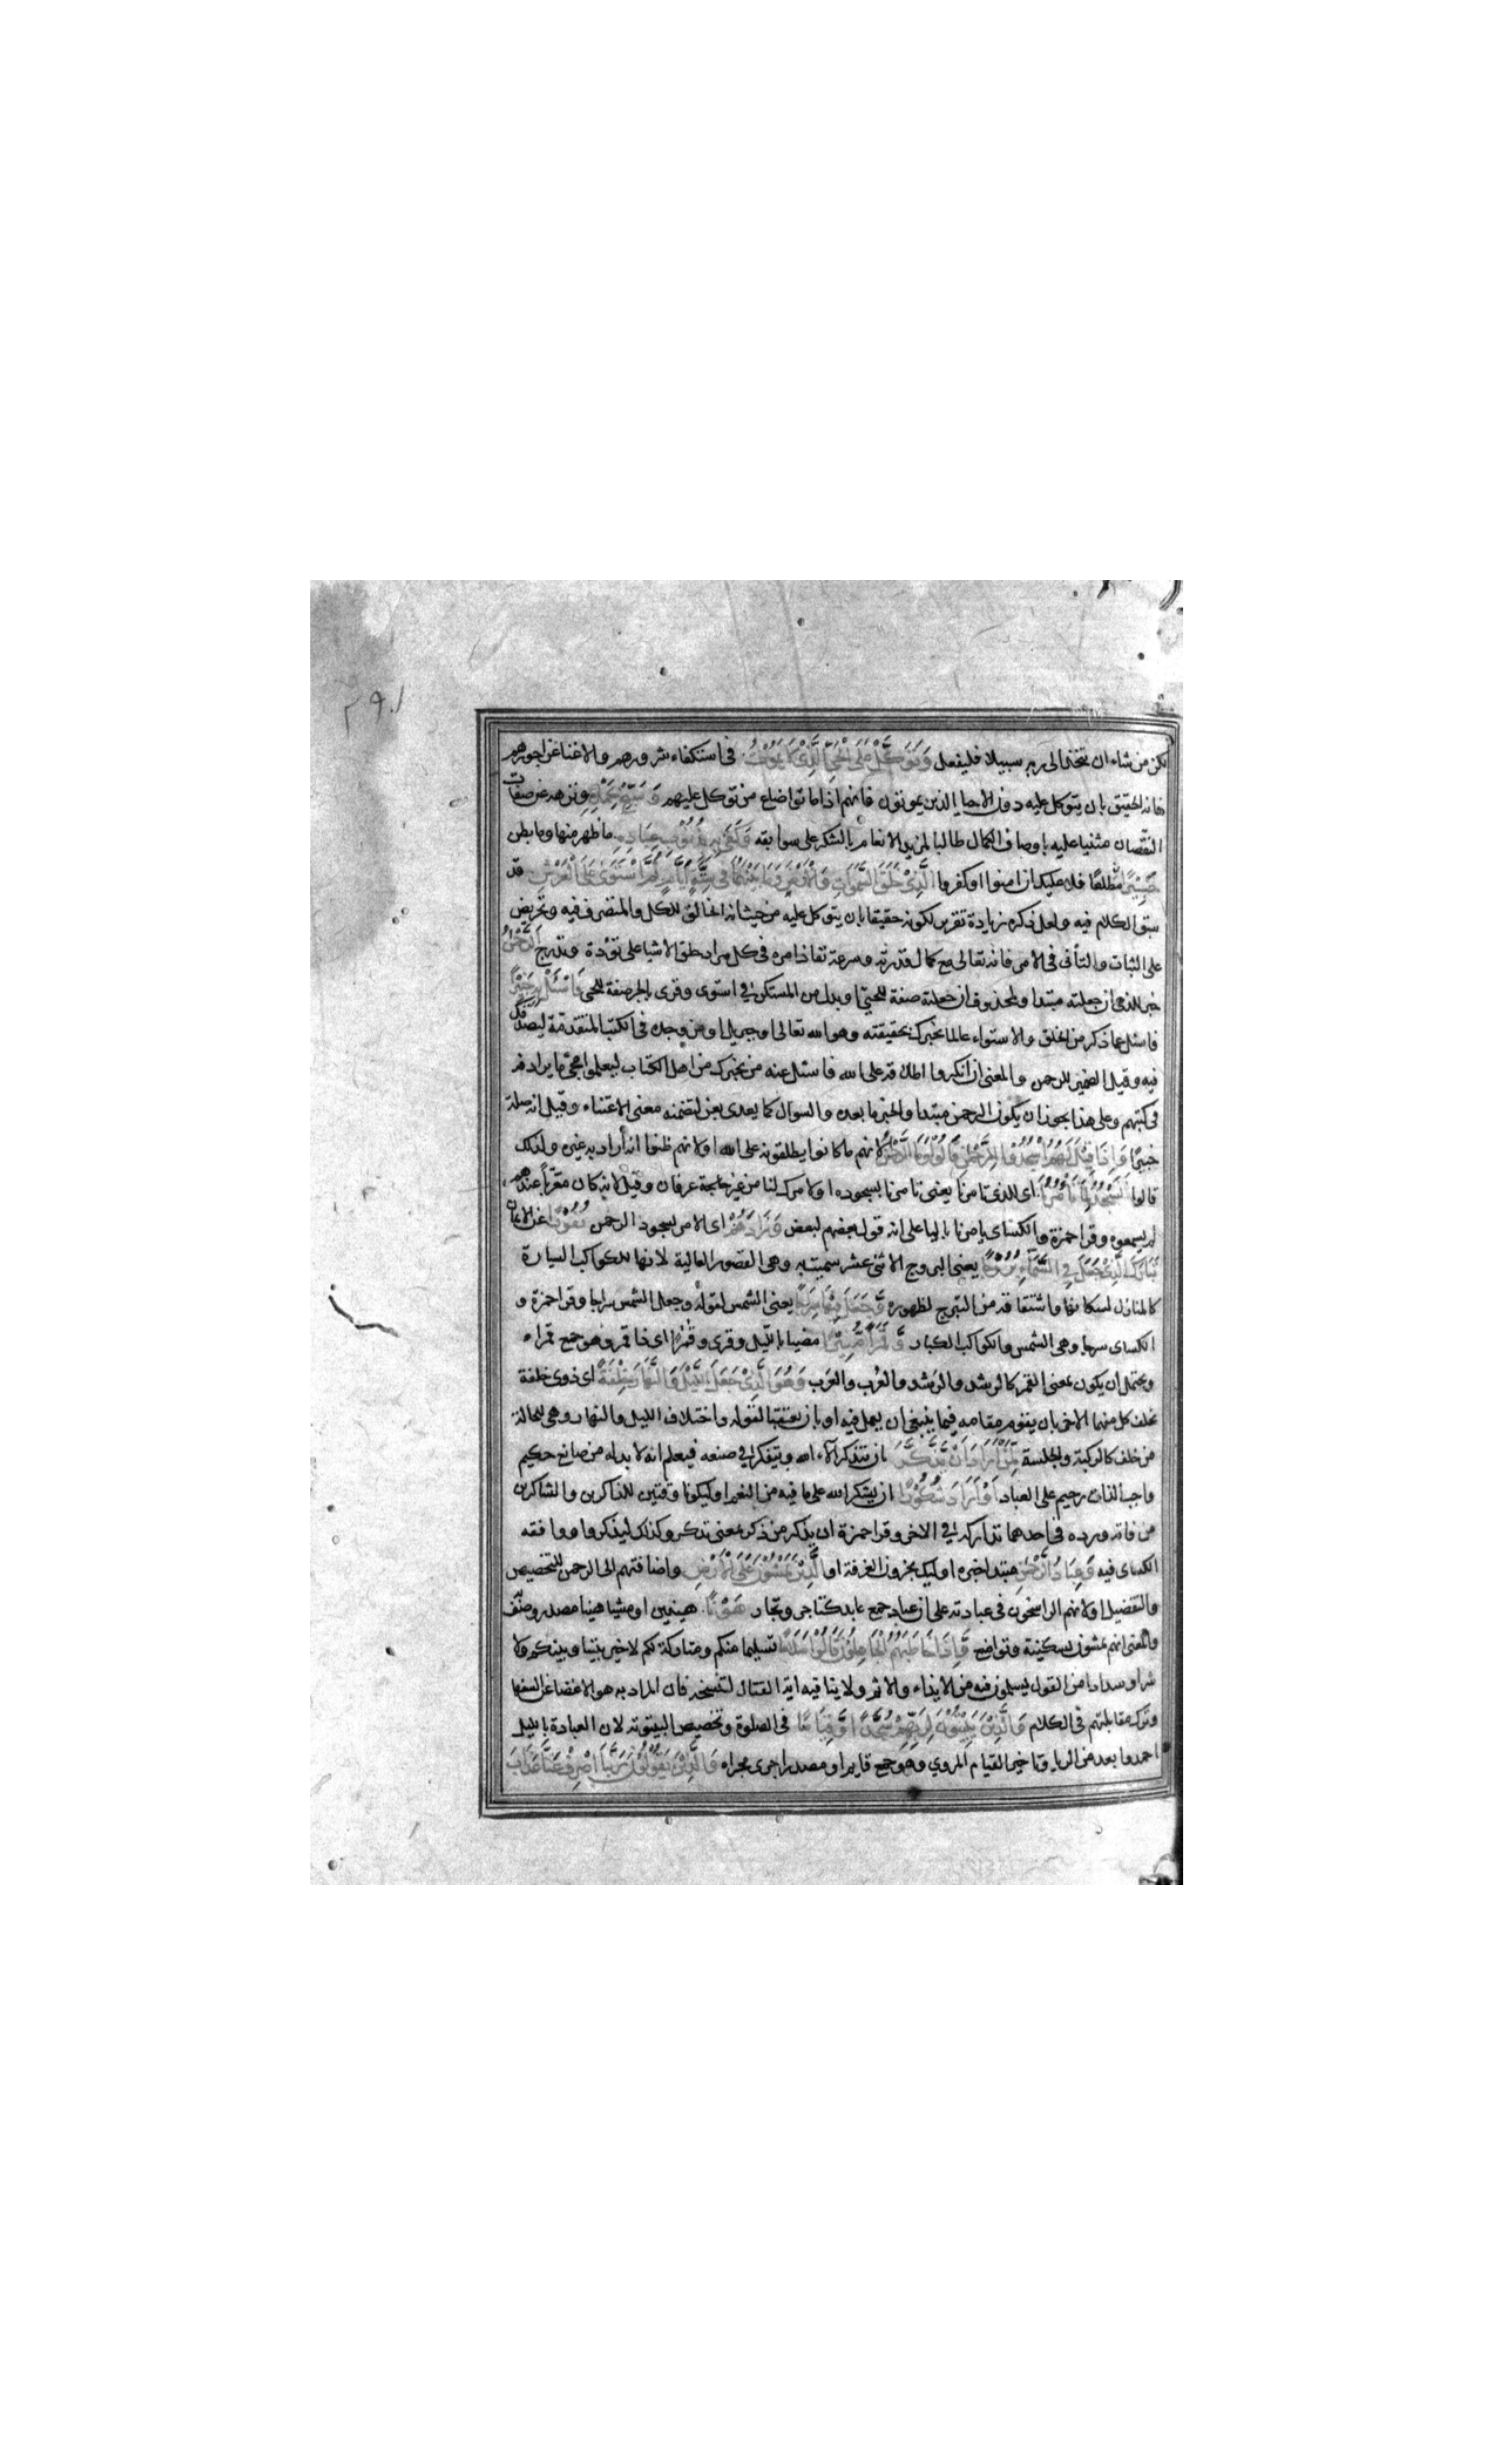 ٢٩١
لكن من شاء ان يتخذ الى ربه سبيلا فليفعل وَتَوَكَّلْ عَلَى الْحَيِّ الَّذِيْ لَا يَمُوْتُ في استكفاء شرورهم والاغنا عن اجورهم
فانه الحقيق بان يتوكل عليه دون الاحيا الذين يموتون فانهم اذا ماتوا ضاع من توكل عليهم وَسَبِّحْ بِحَمْدِهِ ونزهه عن صفات
النقصان مثنيا عليه باوصاف الكمال طالبا لمزيد الانعام بالشكر على سوابقه وَكَفَى بِهِ بِذُنُوْبِ عِبَادِهِ ما ظهر منها وما بطن
خَبِيْرًا مطلعا فلا عليك ان امنوا او كفروا الَّذِيْ خَلَقَ السَّمٰوَاتِ وَالْاَرْضَ وَمَا بَيْنَهُمَا فِي سِتَّةِ اَيَّامٍ ثُمَّ اسْتَوَى عَلَى الْعَرْشِ قد
سبق الكلام فيه ولعل ذكره زيادة تقرير لكونه حقيقا بان يتوكل عليه من حيث انه الخالق للكل والمتصرف فيه وتحريض
على الثبات والتأنى في الامر فانه تعالى مع كمال قدرته وسرعة نفاذ امره في كل مراد خلق الاشيا على تؤدة وتدرج اَلرَّحْمٰنُ
خبر للذي ان جعلته مبتدا ولمحذوف ان جعلته صفة للحي او بدل من المستكن في استوى وقرى بالجر صفة للحي فَاسْئَلْ بِهِ خَبِيْرًا
فاسئل عما ذكر من الخلق والاستواء عالما يخبرك بحقيقته وهو الله تعالى او جبريل او من وجده في الكتب المتقدمة ليصدقك
فيه وقيل الضمير للرحمن والمعنى ان انكروا اطلاقه على الله فاسئل عنه من يخبرك من اهل الكتاب ليعلموا مجئ ما يرادفه
في كتبهم وعلى هذا يجوز ان يكون الرحمن مبتدا والخبر ما بعده والسوال كما يعدى بعن لتضمنه معنى الاعتناء وقيل انه صلة
خبيرًا وَاِذَا قِيْلَ لَهُمُ اسْجُدُوْا لِلرَّحْمٰنِ قَالُوْا وَمَا الرَّحْمٰنُ لانهم ما كانوا يطلقونه على الله او لانهم ظنوا انه اراد به غيره ولذلك
قالوا اَنَسْجُدُ لِمَا تَأْمُرُنَا اى للذي تامرنا يعنى تامرنا بسجوده او لامرك لنا من غير عرفان وقيل لانه كان معربا عندهم
لم يسمعوه وقرا حمزة والكساى يامرنا باليا على انه قول بعضهم لبعض وَزَادَهُمْ اى الامر بسجود الرحمن نُفُوْرًا عن الايمان
تَبَارَكَ الَّذِيْ جَعَلَ فِي السَّمَاءِ بُرُوْجًا يعنى البروج الاثنى عشر سميت به وهى القصور العالية لانها للكواكب السيارة
كالمنازل لسكانها واشتقاقه من التبرج لظهوره وَّجَعَلَ فِيْهَا سِرَاجًا يعنى الشمس لقوله وجعل الشمس سراجا وقرا حمزة و
الكساى سرجا وهى الشمس والكواكب الكبار وَّقَمَرًا مُّنِيْرًا مضيا بالليل وقرى وقُمْرًا اى ذا قمر وهو جمع قمراء
ويحتمل ان يكون بمعنى القمر كالرشد والرَشد والعُرب والعَرَب وَهُوَ الَّذِيْ جَعَلَ اللَّيْلَ وَالنَّهَارَ خِلْفَةً اى ذوى خلفة
يخلف كل منهما الاخر بان يقوم مقامه فيما ينبغى ان يعمل فيه او بان يعتقبا لقوله واختلاف الليل والنهار وهى للحالة
من خلف كالركبة والجلسة لِمَنْ اَرَادَ اَنْ يَّذَّكَّرَ بان يتذكر آلاء الله ويتفكر في صنعه فيعلم انه لا بد له من صانع حكيم
واجب الذات رحيم على العباد اَوْ اَرَادَ شُكُوْرًا ان يشكر الله على ما فيه من النعم او ليكونا وقتين للذاكرين والشاكرين
من فاته ورده في احدهما تداركه في الاخر وقرا حمزة ان يذكر من ذكر بمعنى تذكر وكذلك ليذكروا ووافقه
الكساى فيه وَعِبَادُ الرَّحْمٰنِ مبتدا خبره اوليك يجزون الغرفة او الَّذِيْنَ يَمْشُوْنَ عَلَى الْاَرْضِ واضافتهم الى الرحمن للتخصيص
والتفضيل او لانهم الراسخون في عبادته على ان عباد جمع عابد كتاجر وتجار هَوْنًا هينين او مشيا هينا مصدر وصف
والمعنى انهم يمشون بسكينة وتواضع وَّاِذَا خَاطَبَهُمُ الْجَاهِلُوْنَ قَالُوْا سَلَامًا تسليما منكم ومتاركة لكم لا خير بيننا وبينكم ولا
شر او سدادا من القول يسلمون فيه من الايذاء والاثم ولا ينافيه اية القتال لتنسخه فان المراد به هو الاغضا عن السفها
وترك مقابلتهم في الكلام وَالَّذِيْنَ يَبِيْتُوْنَ لِرَبِّهِمْ سُجَّدًا وَّقِيَامًا في الصلوة وتخصيص البيتوتة لان العبادة بالليل
احمد وابعد من الريا وتاخير القيام للروي وهو جمع قايم او مصدر اجرى مجراه وَالَّذِيْنَ يَقُوْلُوْنَ رَبَّنَا اصْرِفْ عَنَّا عَذَابَ